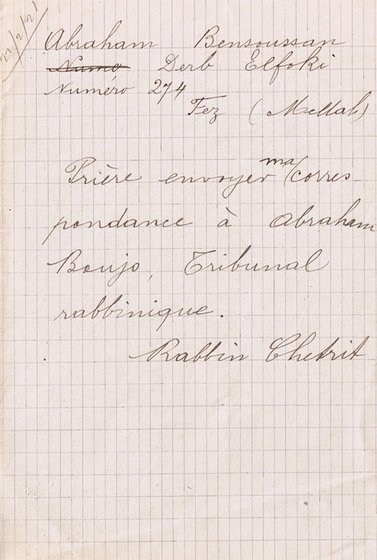 Abraham Bensoussan
Numo Derb Elfoki
Numéro 274
Fez (Mellah)
Prière envoyer ma corres-
pondance à Abraham
Boujo, Tribunal
rabbinique.
Rabbin Chetrit